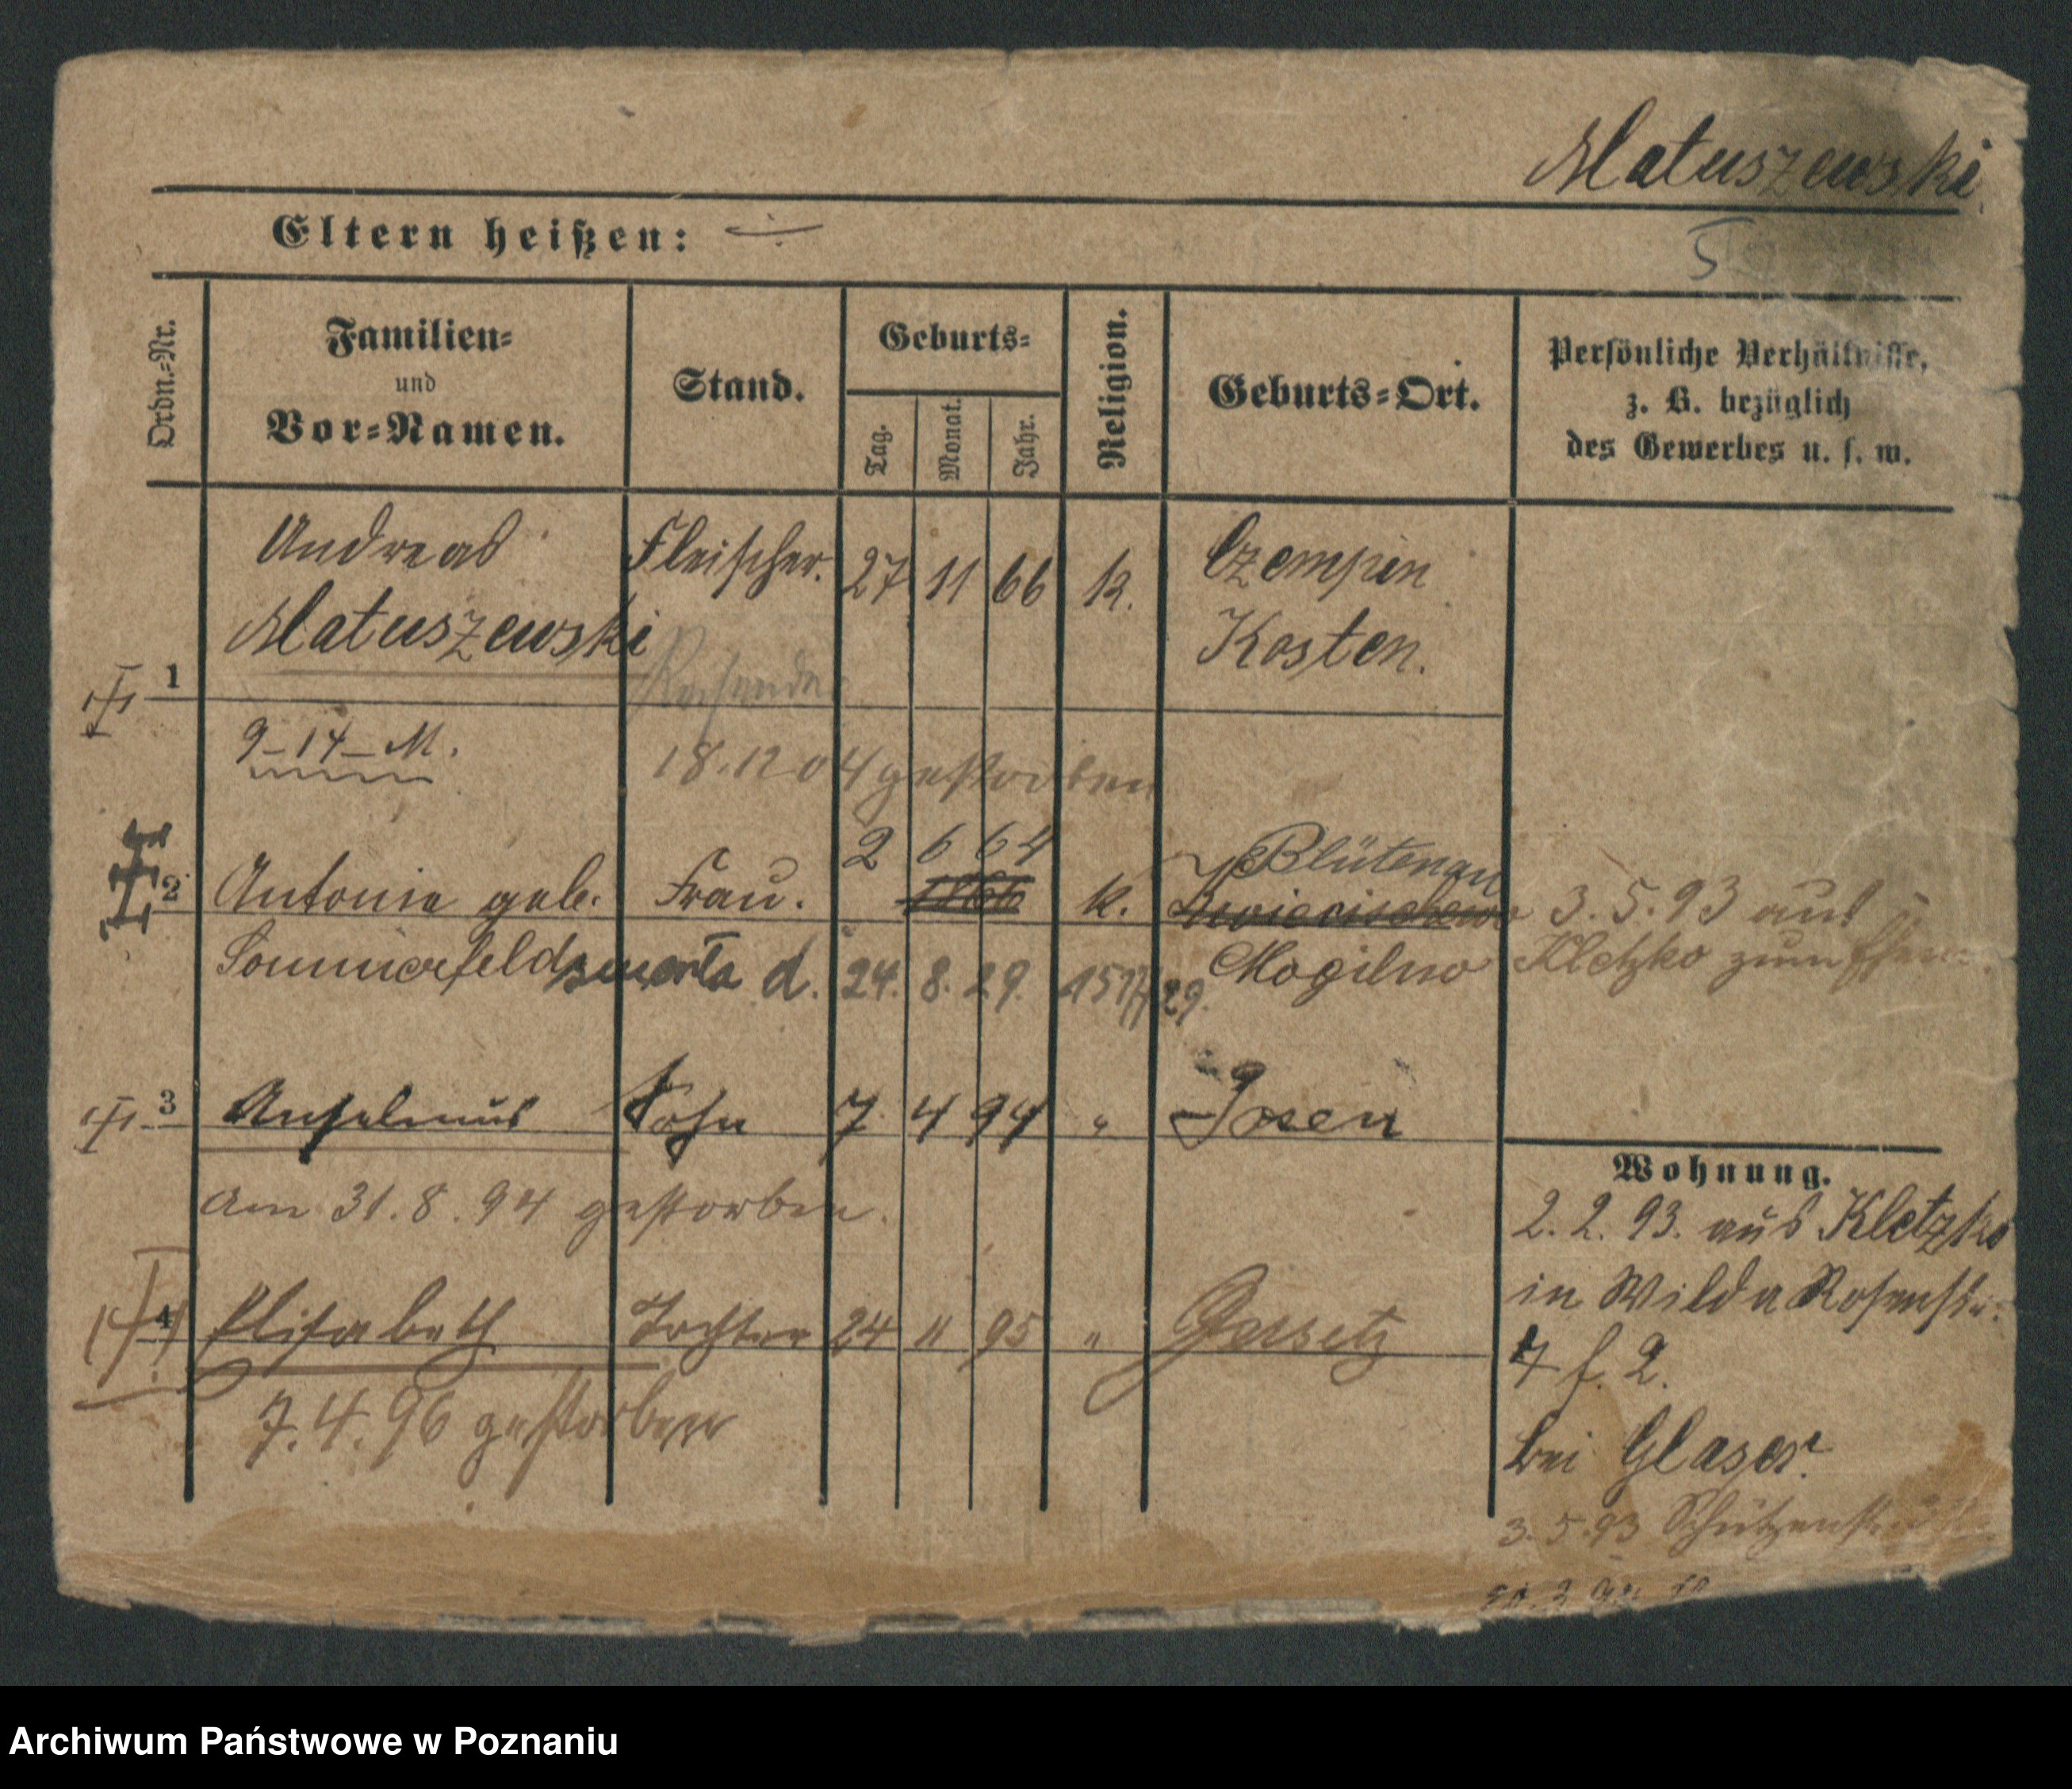 Matuszewski
Eltern heißen: ÷
Ordn.-Nr.
Familien-
und
Vor-Namen.
Stand.
Geburts-
Tag.
Monat.
Jahr.
Religion.
Geburts-Ort.
Persönliche Verhältnisse,
z. B. bezüglich
des Gewerbes u. s. w.
Andreas Fleischer. 27 11 66 k. Czempin
1 Matuszewski Kosten.
9-14-M.
18.12 04 gestorben
2 6 64 Blütenau
2 Antonie geb. Frau. 1866 k. 3.5.93 aus
Sommerfeld zmarła d. 24. 8. 29. 1517/29. Mogilno Kletzko zum
3 Anselmus Sohn 7. 4 94 " Posen
am 31.8.94 gestorben.
4 Elisabeth Tochter 24 11 95 " Gursetz
7.4.96 gestorben
Wohnung.
2.2.93. aus Kletzko
in Wilda Rosenstr.
7 f. 2.
bei Glaser.
3.5.93 Schützenstr
Archiwum Państwowe w Poznaniu